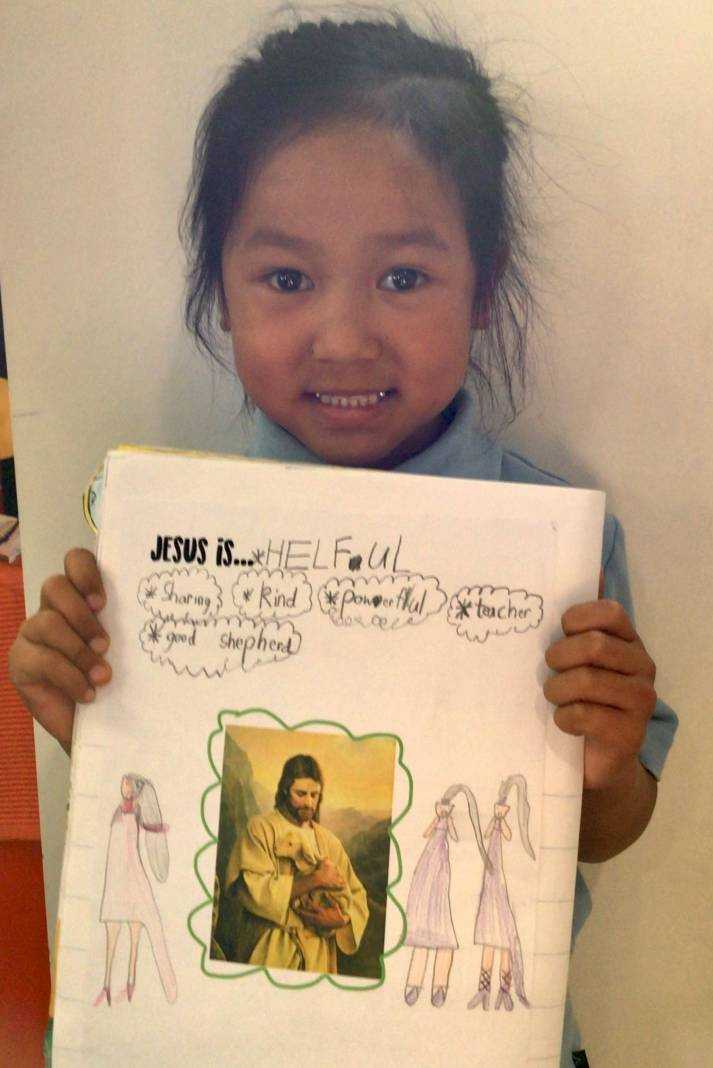 JESUS iS...*HELFUL
* Sharing * Kind * powerful * teacher
* good shepherd